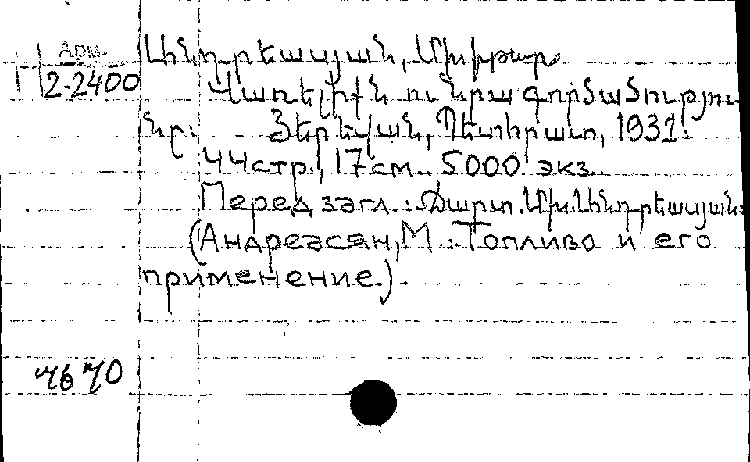 Арм.
П 2-2400
Անդրեասյան, Մխիթար
Վառելիքն ու նրա գործածությու-
նը. Յերեվան, Պետհրատ, 1931.
44 стр., 17 см. 5000 экз.
Перед загл.: Մխ. Անդրեասյան.
(Андреасян, М. Топливо и его
применение.)
7670